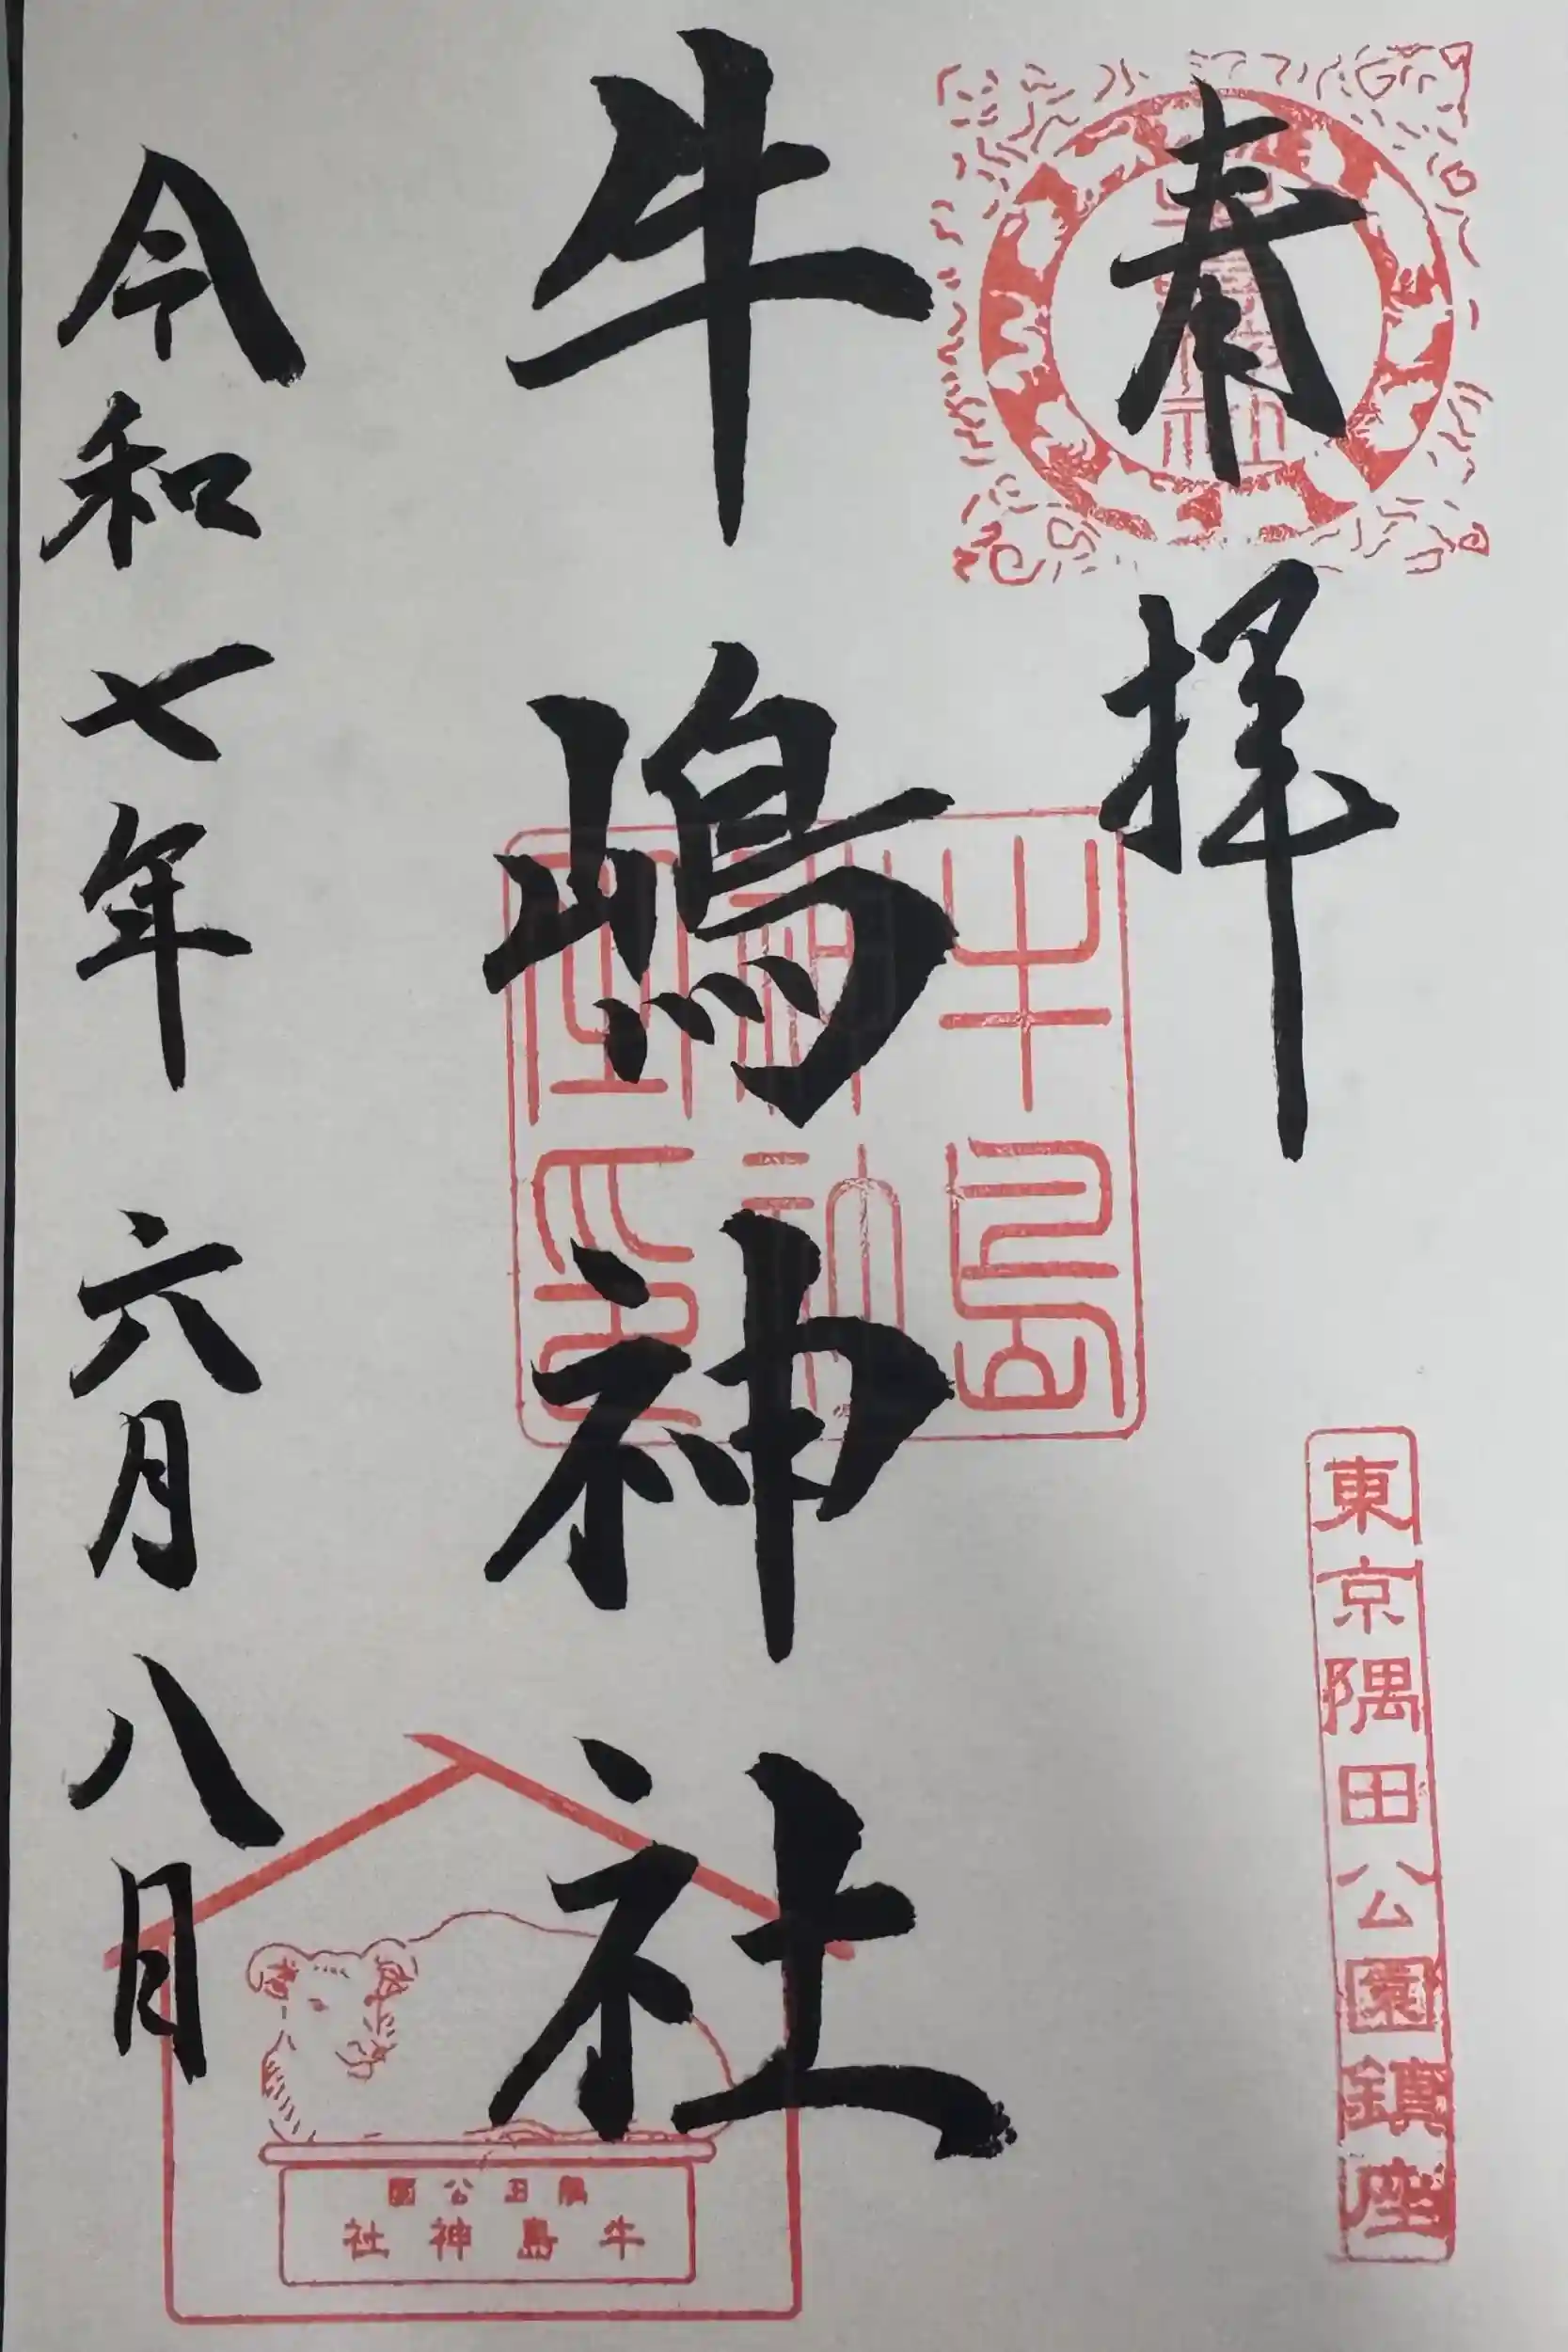 奉拝
東京隅田公園鎮座
牛嶋神社
牛島神社印
隅田公園
牛島神社
令和七年六月八日